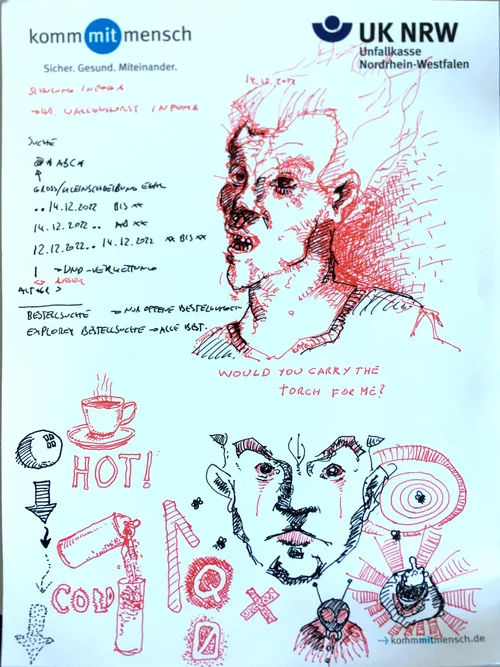 komm mit mensch
Sicher. Gesund. Miteinander.
UK NRW
Unfallkasse
Nordrhein-Westfalen
SCHULUNG INFOMA
14.12.2022
INFOMA
SUCHE
GROSS/KLEINSCHREIBUNG EGAL
..14.12.2022 BIS XX
14.12.2022.. AB XX
12.12.2022.. 14.12.2022 XX BIS XX
| → UND-VERKETTUNG
<> AUSSER
BESTELLSUCHE → NUR OFFENE BESTELLUNGEN
EXPLORER BESTELLSUCHE → ALLE BEST.
WOULD YOU CARRY THE
TORCH FOR ME?
HOT!
COLD
→kommmitmensch.de